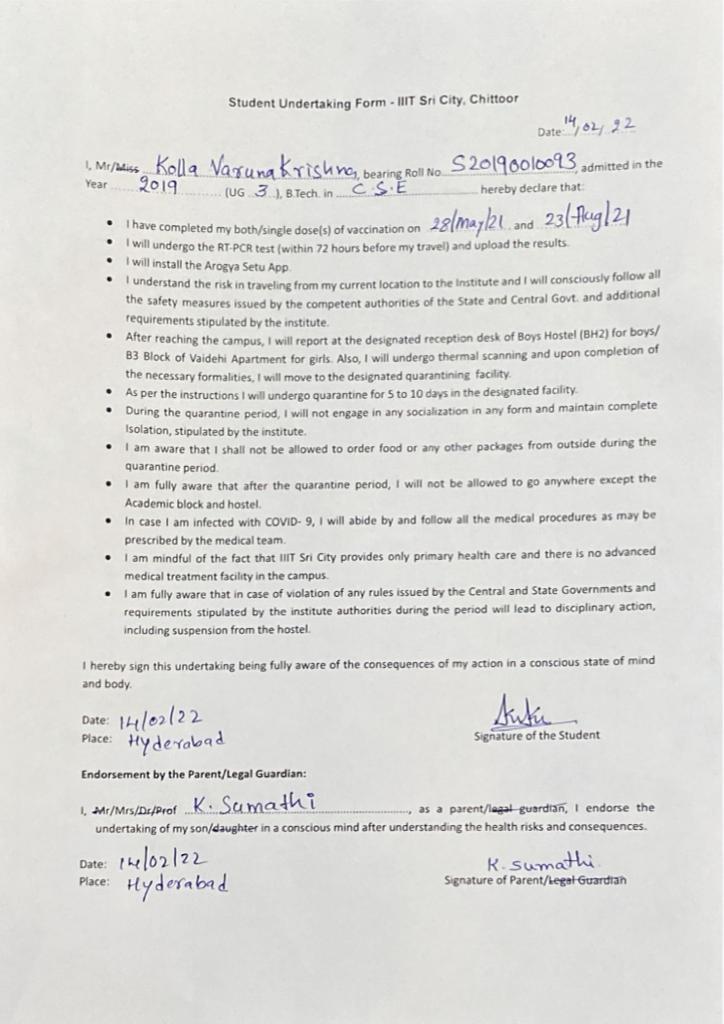 Student Undertaking Form - IIIT Sri City, Chittoor
Date: 14/02/22
I, Mr/Miss Kolla VarunaKrishna, bearing Roll No S20190010093, admitted in the
Year 2019 (UG 3), B.Tech. in C.S.E hereby declare that:
• I have completed my both/single dose(s) of vaccination on 28/May/21 and 23/Aug/21
• I will undergo the RT-PCR test (within 72 hours before my travel) and upload the results.
• I will install the Arogya Setu App.
• I understand the risk in traveling from my current location to the Institute and I will consciously follow all
the safety measures issued by the competent authorities of the State and Central Govt. and additional
requirements stipulated by the institute.
• After reaching the campus, I will report at the designated reception desk of Boys Hostel (BH2) for boys/
B3 Block of Vaidehi Apartment for girls. Also, I will undergo thermal scanning and upon completion of
the necessary formalities, I will move to the designated quarantining facility.
• As per the instructions I will undergo quarantine for 5 to 10 days in the designated facility.
• During the quarantine period, I will not engage in any socialization in any form and maintain complete
Isolation, stipulated by the institute.
• I am aware that I shall not be allowed to order food or any other packages from outside during the
quarantine period.
• I am fully aware that after the quarantine period, I will not be allowed to go anywhere except the
Academic block and hostel.
• In case I am infected with COVID- 9, I will abide by and follow all the medical procedures as may be
prescribed by the medical team.
• I am mindful of the fact that IIIT Sri City provides only primary health care and there is no advanced
medical treatment facility in the campus.
• I am fully aware that in case of violation of any rules issued by the Central and State Governments and
requirements stipulated by the institute authorities during the period will lead to disciplinary action,
including suspension from the hostel.
I hereby sign this undertaking being fully aware of the consequences of my action in a conscious state of mind
and body.
Date: 14/02/22
Place: Hyderabad
Signature of the Student
Endorsement by the Parent/Legal Guardian:
I, Mr/Mrs/Dr/Prof K. Sumathi, as a parent/legal guardian, I endorse the
undertaking of my son/daughter in a conscious mind after understanding the health risks and consequences.
Date: 14/02/22
Place: Hyderabad
K. Sumathi.
Signature of Parent/Legal Guardian